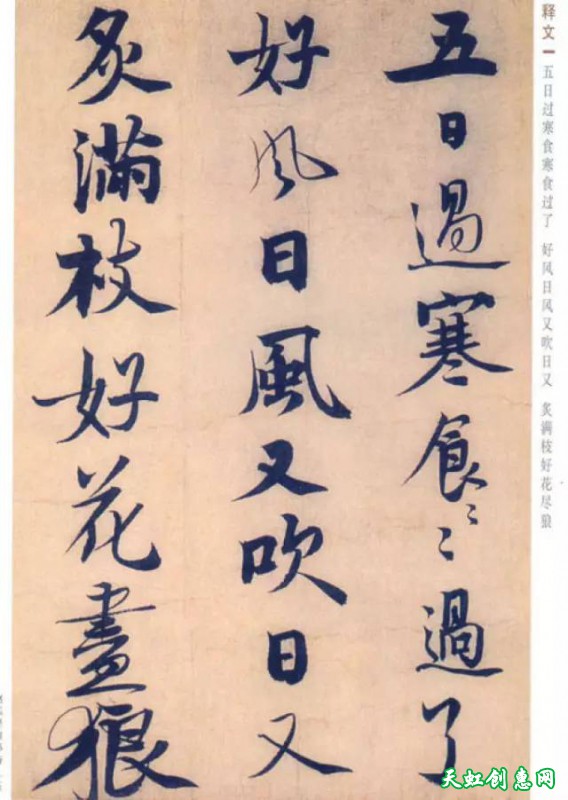 释文一 五日过寒食寒食过了 好风日风又吹日又 炙满枝好花尽狼
五日過寒食〻〻過了
好風日風又吹日又
炙滿枝好花盡狼
天虹创惠网